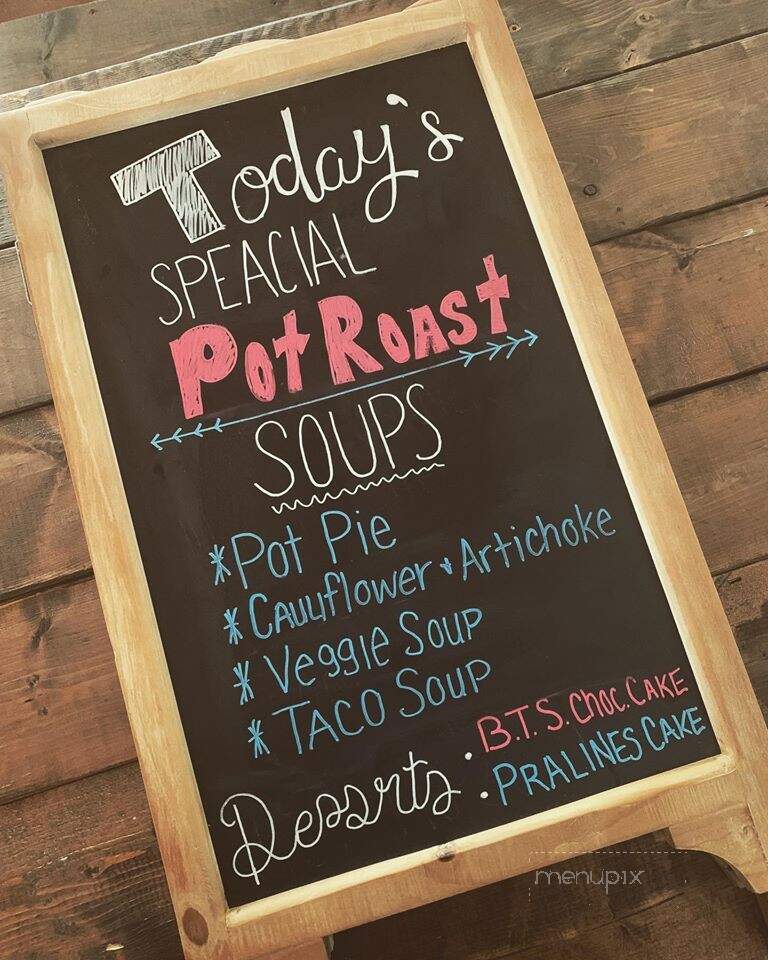 Today's
SPEACIAL
Pot Roast
SOUPS
*Pot Pie
*Cauuflower & Artichoke
*Veggie Soup
*TACO Soup
Dessrts
• B.T.S. Choc. CAKE
• PRALINES CAKE
menupix